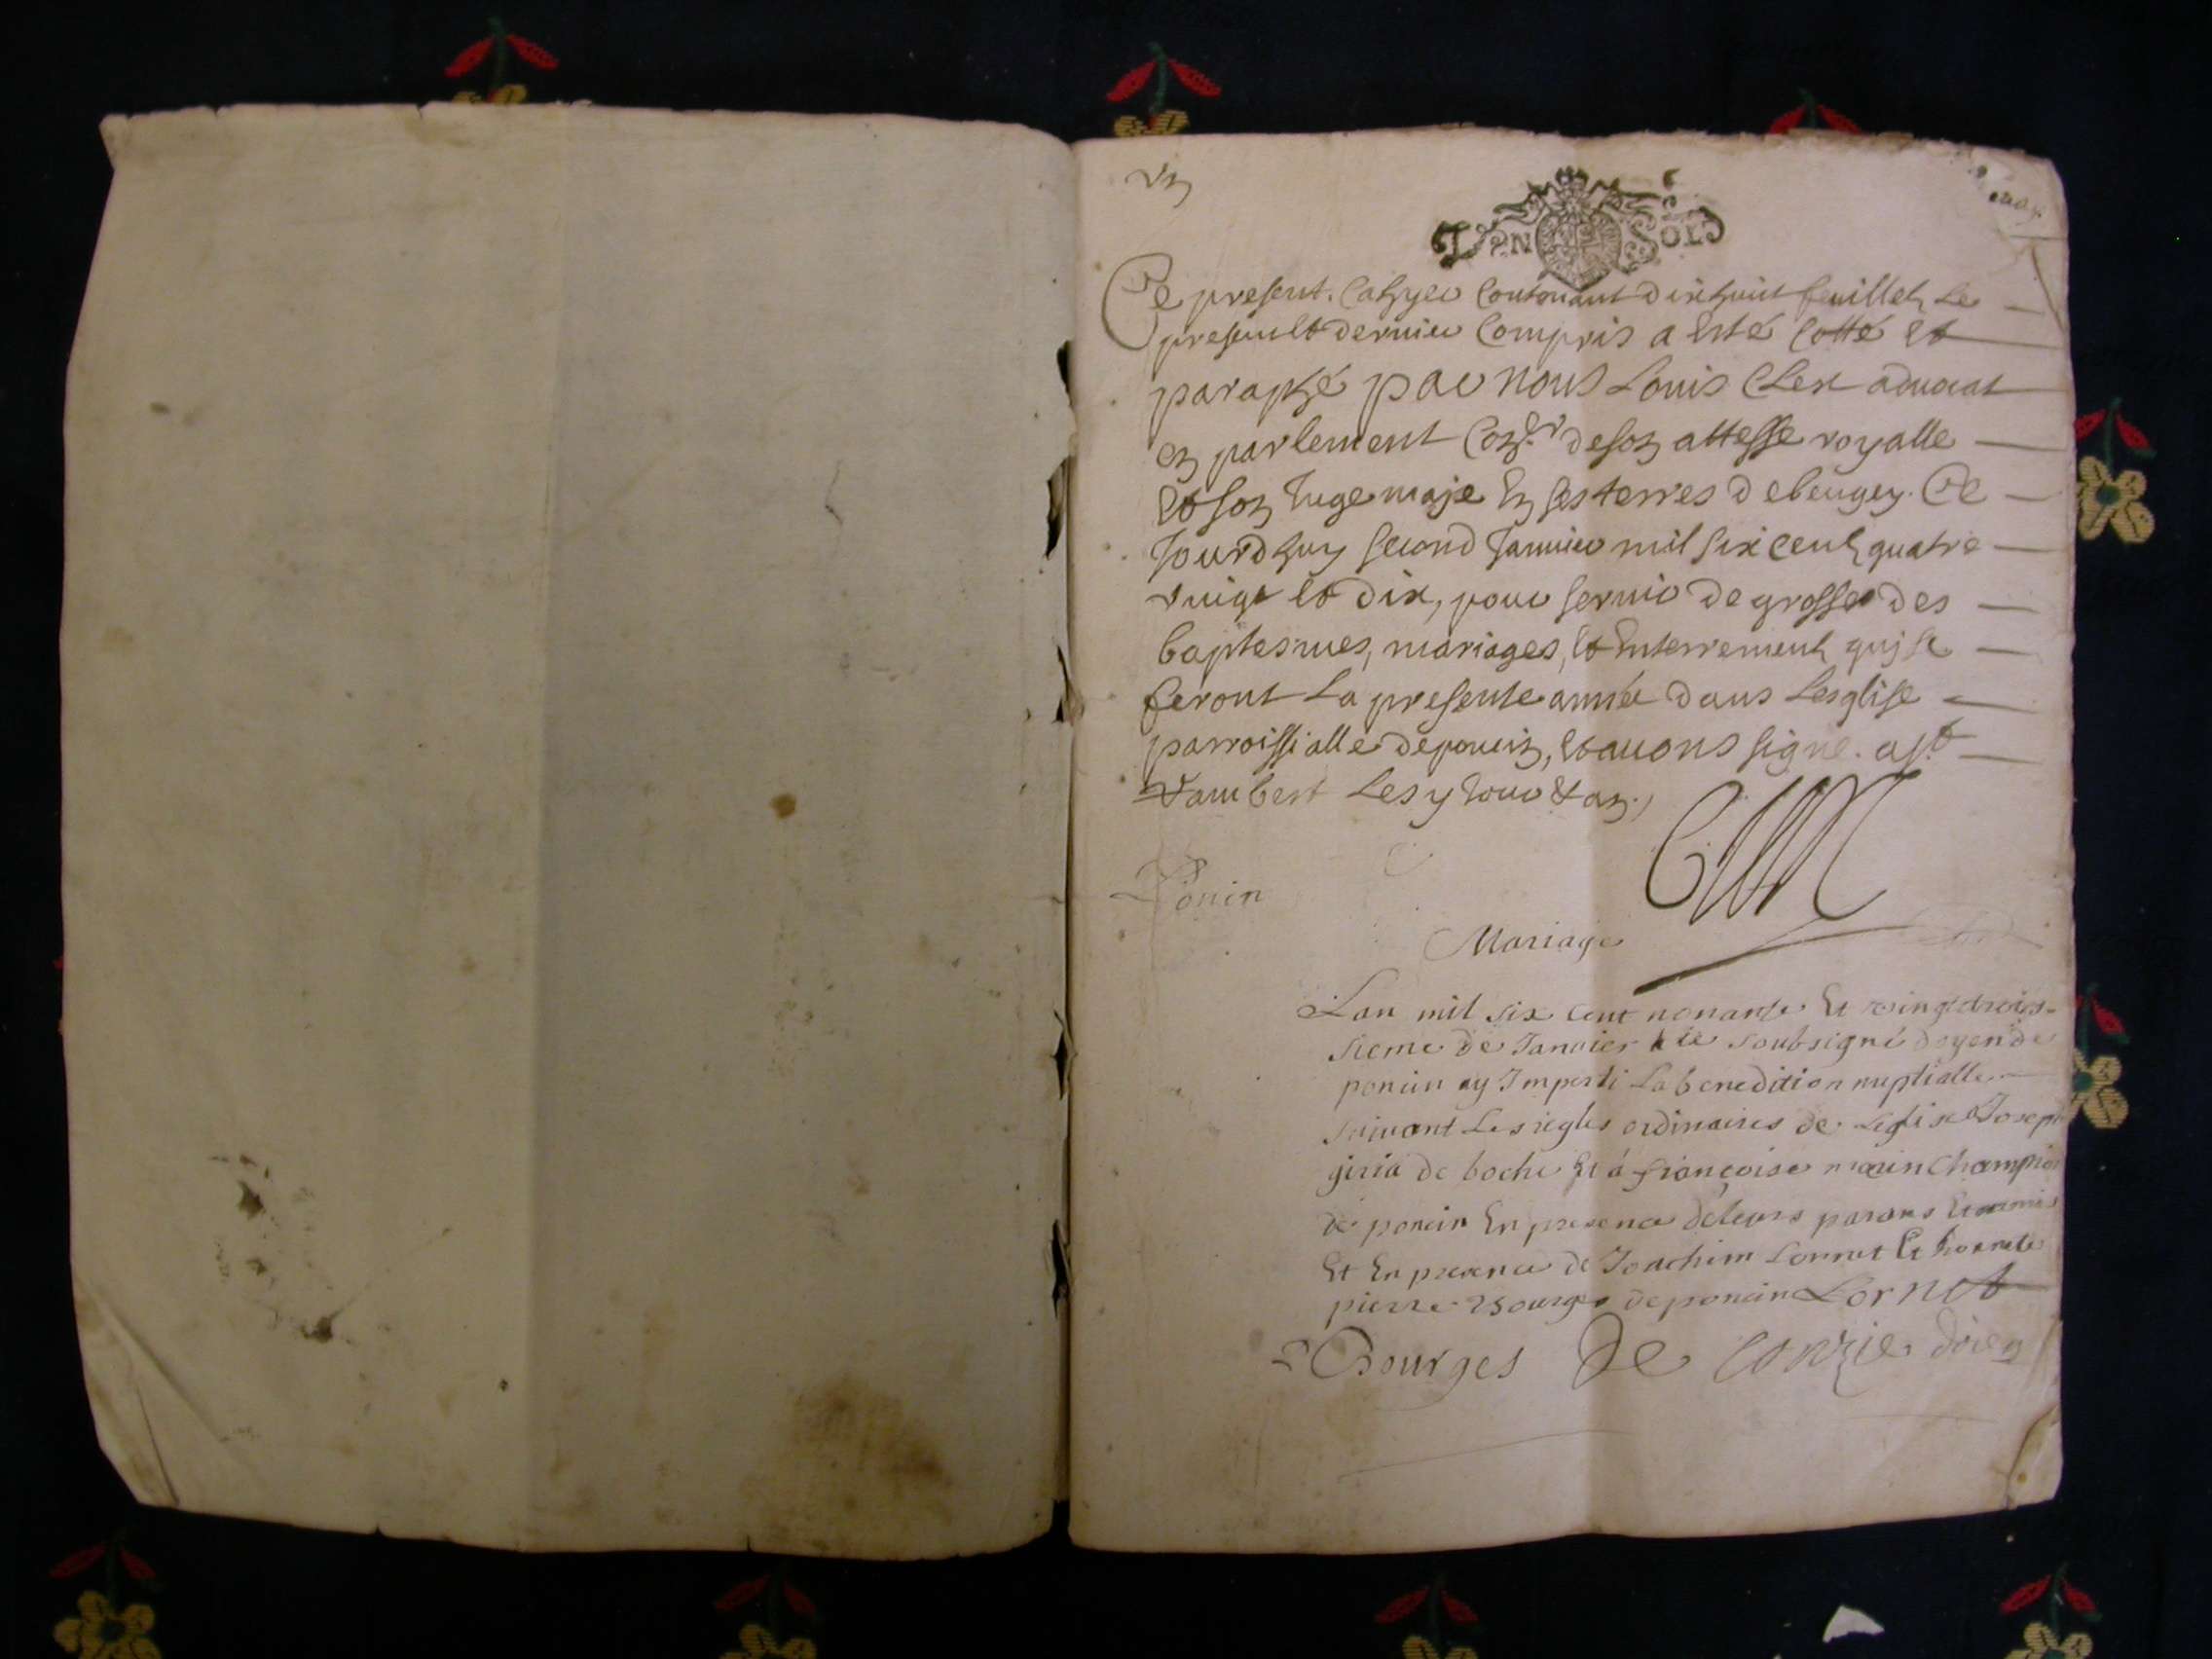 Un
UN SOLS
Ce present Cahyer Contenant dixhuict feuillets Le
present et dernier Compris a Esté Cotté et
paraphé par nous Louis Clerc aduocat
en parlement Con.er de son altesse royalle
et son Juge maje En ses terres de beugey. Ce
Jourdhuy second Januier mil six cents quatre
vingt et dix, pour seruir de grosse des
baptesmes, mariages, et Enterrements quj se
feront La presente année dans Lesglise
parroissialle de poncin, et auons signé. a St
Rambert Les y Jour & an.
Poncin
Mariage
Lan mil six cent nonante Et vingt trois-
sieme de Janvier Je soubsigné doyen de
poncin ay Imparti La benedition nuptialle
suivant Les regles ordinaires de Leglise a Joseph
giria de boche Et á françoise marin Champion
de poncin En presence de leurs parans Et amis
Et En presence de Joachim Lornet Et honneste
pierre Bourges de poncin Lornet
Bourges De Conzie doien